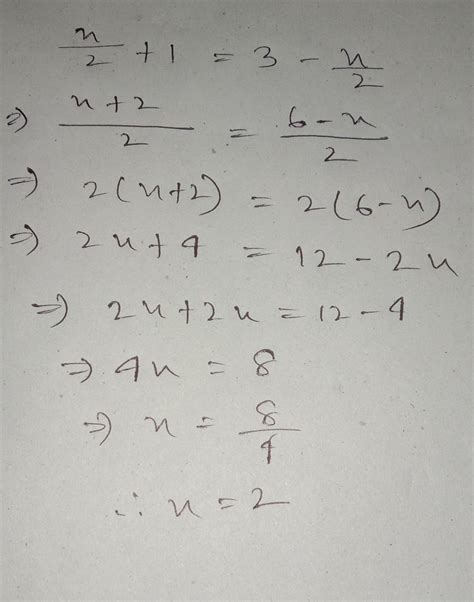 x/2 + 1 = 3 - x/2
⇒ (x+2)/2 = (6-x)/2
⇒ 2(x+2) = 2(6-x)
⇒ 2x+4 = 12-2x
⇒ 2x+2x = 12-4
⇒ 4x = 8
⇒ x = 8/4
∴ x = 2